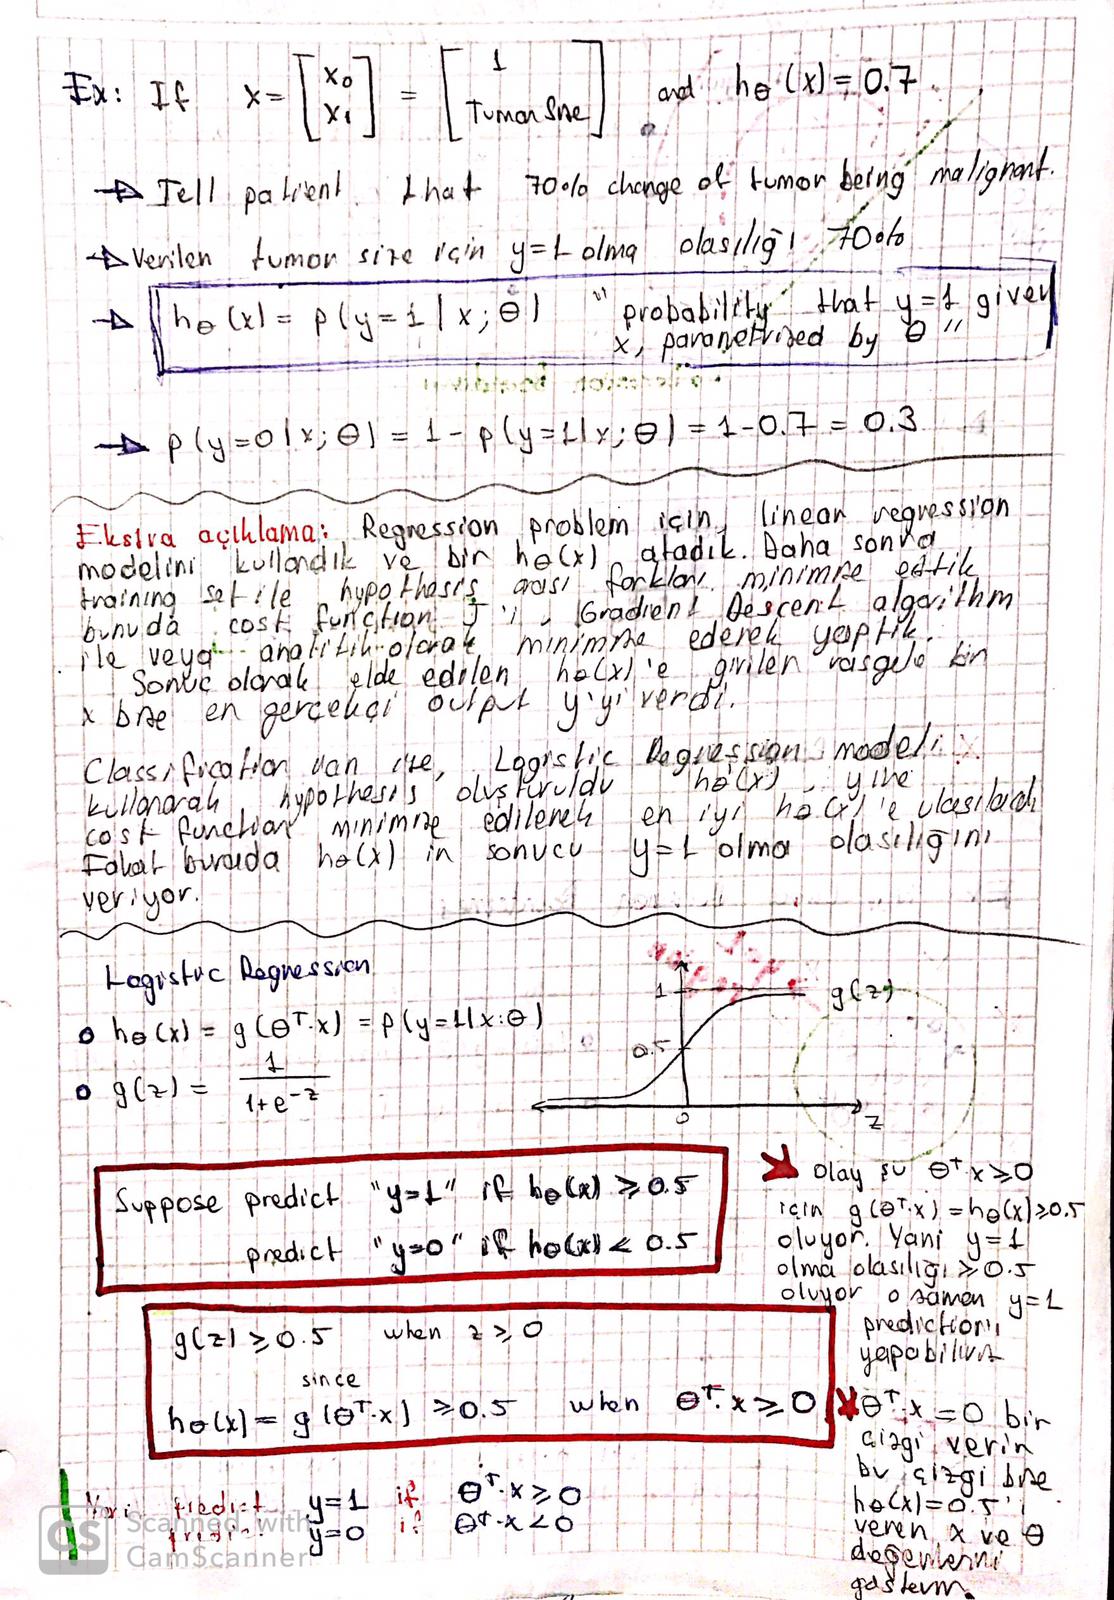 Ex: If x = [x0 x1] = [1 Tumor Size] and hθ(x) = 0.7
→ Tell patient that 70% change of tumor being malignant.
→ Verilen tumor size için y=1 olma olasılığı 70%
→ hθ(x) = p(y=1|x;θ) "probability that y=1 given
x, parametrized by θ"
→ p(y=0|x;θ) = 1 - p(y=1|x;θ) = 1-0.7 = 0.3
Ekstra açıklama: Regression problem için, linear regression
modelini kullandık ve bir hθ(x) atadık. Daha sonra
training set ile hypothesis arası farkları minimize ettik
bunuda cost function J'i, Gradient Descent algorithm
ile veya analitik olarak minimize ederek yaptık.
Sonuç olarak elde edilen hθ(x)'e girilen rasgele bir
x bize en gerçekçi output y'yi verdi.
Classification dan ise, Logistic Regression modeli
kullanarak hypothesis oluşturuldu hθ(x) yine
cost function minimize edilerek en iyi hθ(x)'e ulaşılacak
Fakat burada hθ(x) in sonucu y=1 olma olasılığını
veriyor.
Logistic Regression
o hθ(x) = g(θᵀ.x) = p(y=1|x:θ)
o g(z) = 1/(1+e^-z)
1
g(z)
0.5
0
z
Suppose predict "y=1" if hθ(x) ≥ 0.5
predict "y=0" if hθ(x) < 0.5
g(z) ≥ 0.5 when z ≥ 0
since
hθ(x) = g(θᵀ.x) ≥ 0.5 when θᵀ.x ≥ 0
Yani predict y=1 if θᵀ.x ≥ 0
y=0 if θᵀ.x < 0
Olay şu θᵀ.x ≥ 0
için g(θᵀ.x) = hθ(x) ≥ 0.5
oluyor. Yani y=1
olma olasılığı ≥ 0.5
oluyor o zaman y=1
predictionı
yapabiliriz
θᵀ.x = 0 bir
çizgi verir
bu çizgi bize
hθ(x)=0.5'i
veren x ve θ
değerlerini
gösterir.
CS Scanned with
CamScanner